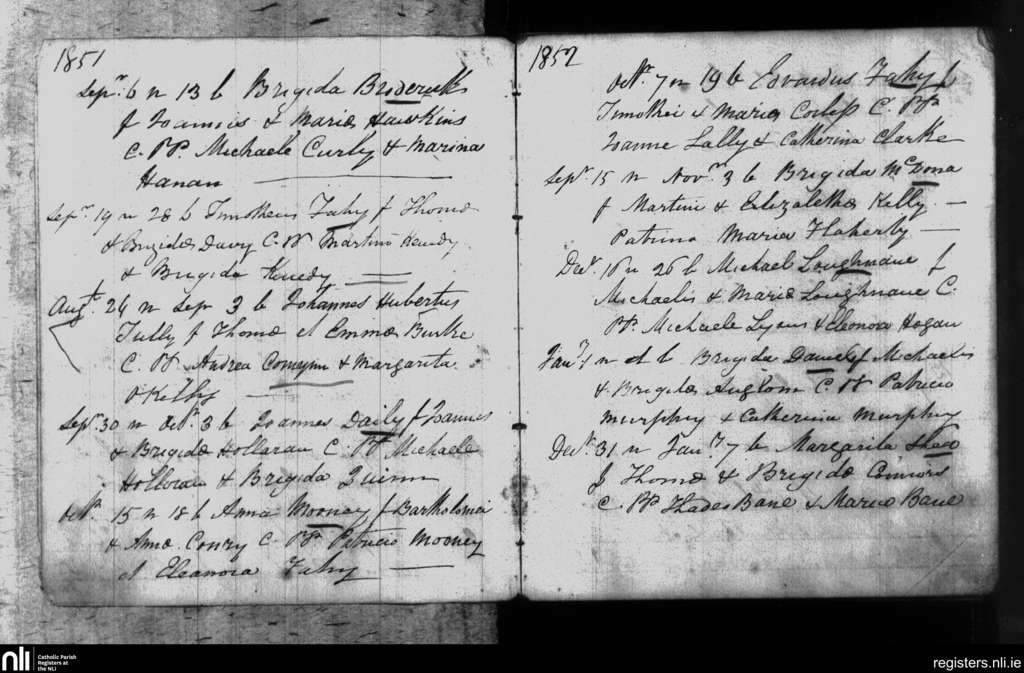 1851
Sepr. 6 n 13 b Brigida Broderick
f Joannis & Mariæ Hawkins
C. PP. Michaele Curly & Marina
Hanan
Sepr. 19 n 28 b Timotheus Fahy f Thomæ
& Brigidæ Davy C. PP Martino Kenedy
& Brigida Kenedy
Augt. 26 n Sepr 3 b Johannes Hubertus
Tully f Thomæ et Emmæ Burke
C. PP Andrea Comynn & Margarita
O'Kelly
Sepr. 30 n Octr. 3 b Joannes Daily f Joannes
& Brigidæ Hollaran C. PP Michaele
Holloran & Brigida Quinn
Octr. 15 n 18 b Anna Mooney f Bartholomei
& Annæ Conry C. PP. Patricio Mooney
et Eleanora Fahy
1852
Octr. 7 n 19 b Edvardus Fahy f
Timothei & Mariæ Corless C. PP
Joanne Lally & Catherina Clarke
Sepr. 15 n Novr. 3 b Brigida McDona
f Martini & Elizabethæ Kelly
Patrina Maria Flaherty
Decr. 16 n 26 b Michael Loughnane f
Michaelis & Mariæ Loughnane C.
PP. Michaele Lyons & Eleonora Hogan
Jany. 1 n et b Brigida Daniel f Michaelis
& Brigidæ C. PP Patricio
Murphy & Catherina Murphy
Decr. 31 n Jany. 7 b Margarita Shea
f Thomæ & Brigidæ Connors
C. PP. Thades Bane & Maria Bane
nli
Catholic Parish
Registers at
the NLI
registers.nli.ie